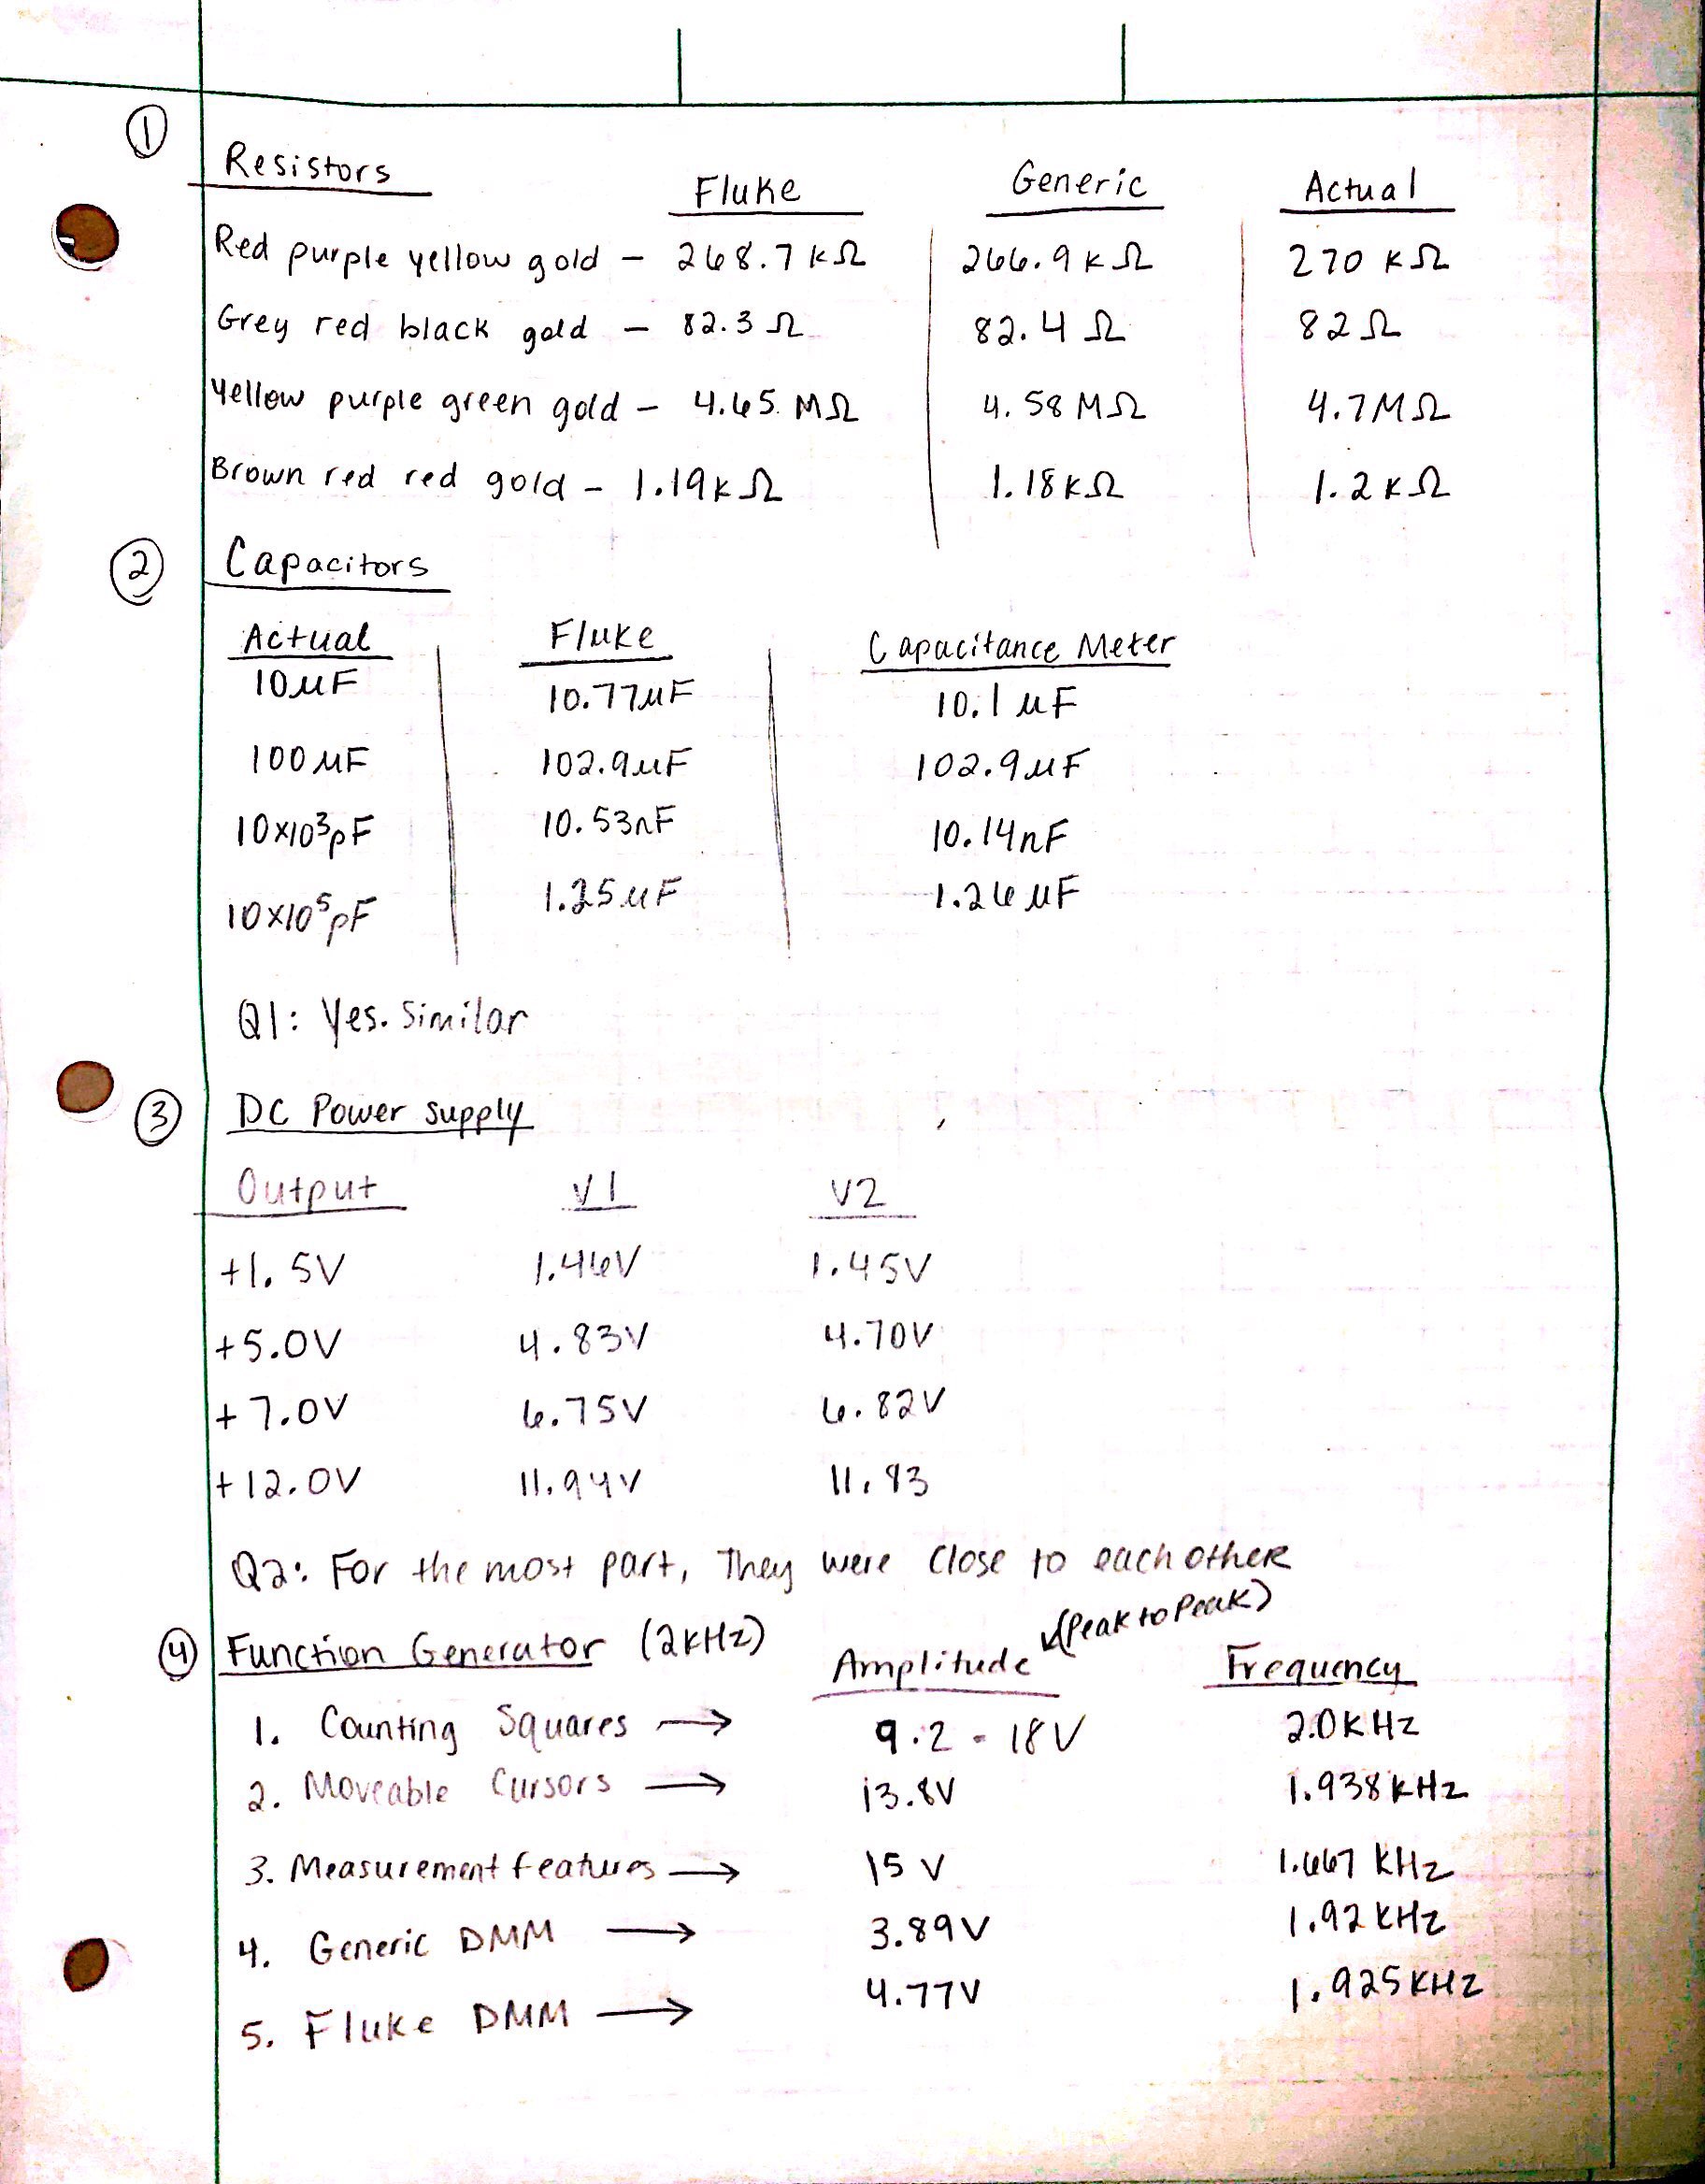 ①
Resistors Fluke Generic Actual
Red purple yellow gold - 268.7 kΩ 266.9 kΩ 270 kΩ
Grey red black gold - 82.3 Ω 82.4 Ω 82 Ω
Yellow purple green gold - 4.65 MΩ 4.58 MΩ 4.7 MΩ
Brown red red gold - 1.19 kΩ 1.18 kΩ 1.2 kΩ
② Capacitors
Actual Fluke Capacitance Meter
10μF 10.77μF 10.1 μF
100 μF 102.9μF 102.9μF
10×10³pF 10.53nF 10.14nF
10×10⁵pF 1.25μF 1.26μF
Q1: Yes. Similar
③ DC Power supply
Output V1 V2
+1.5V 1.46V 1.45V
+5.0V 4.83V 4.70V
+7.0V 6.75V 6.82V
+12.0V 11.94V 11.83
Q2: For the most part, They were close to each other
④ Function Generator (2kHz) Amplitude (Peak to Peak) Frequency
1. Counting Squares → 9.2 - 18V 2.0KHz
2. Moveable Cursors → 13.8V 1.938kHz
3. Measurement features → 15 V 1.667 KHz
4. Generic DMM → 3.89V 1.92 KHz
5. Fluke DMM → 4.77V 1.925KHz